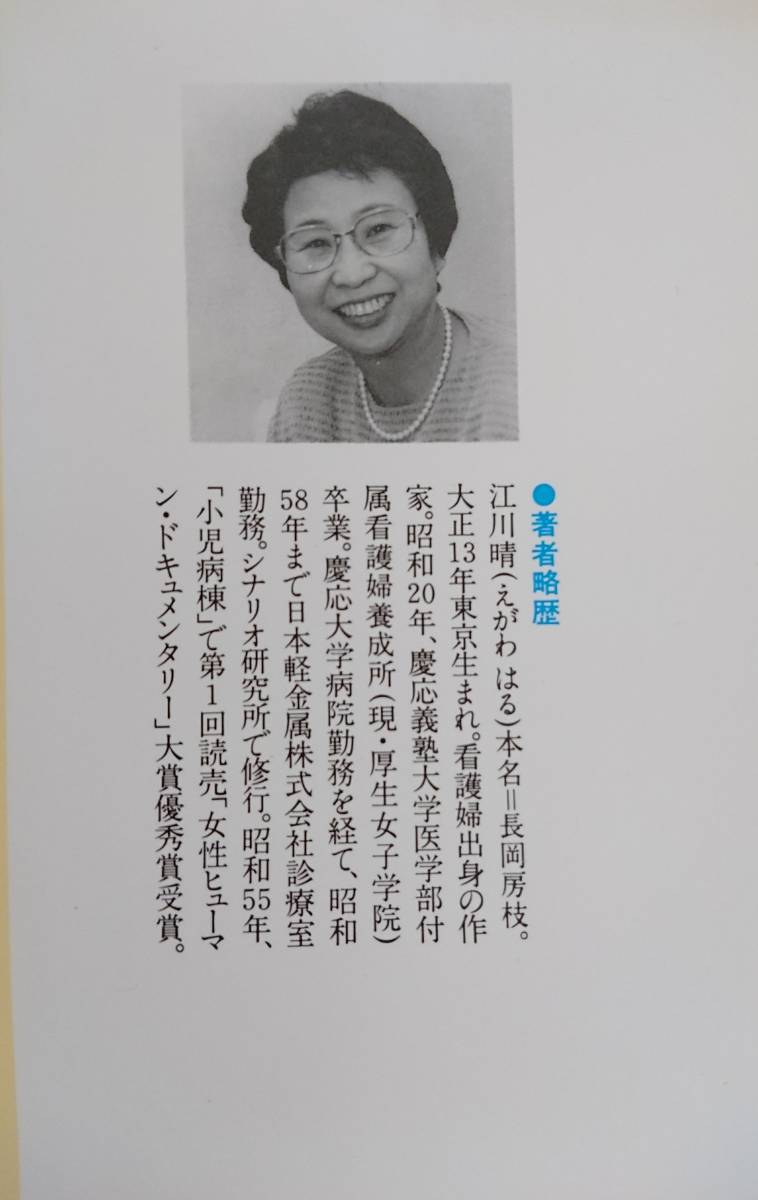 ●著者略歴
江川晴(えがわ はる)本名=長岡房枝。
大正13年東京生まれ。看護婦出身の作
家。昭和20年、慶応義塾大学医学部付
属看護婦養成所(現・厚生女子学院)
卒業。慶応大学病院勤務を経て、昭和
58年まで日本軽金属株式会社診療室
勤務。シナリオ研究所で修行。昭和55年、
「小児病棟」で第1回読売「女性ヒューマ
ン・ドキュメンタリー」大賞優秀賞受賞。